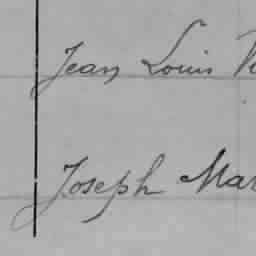 Jean Louis
Joseph